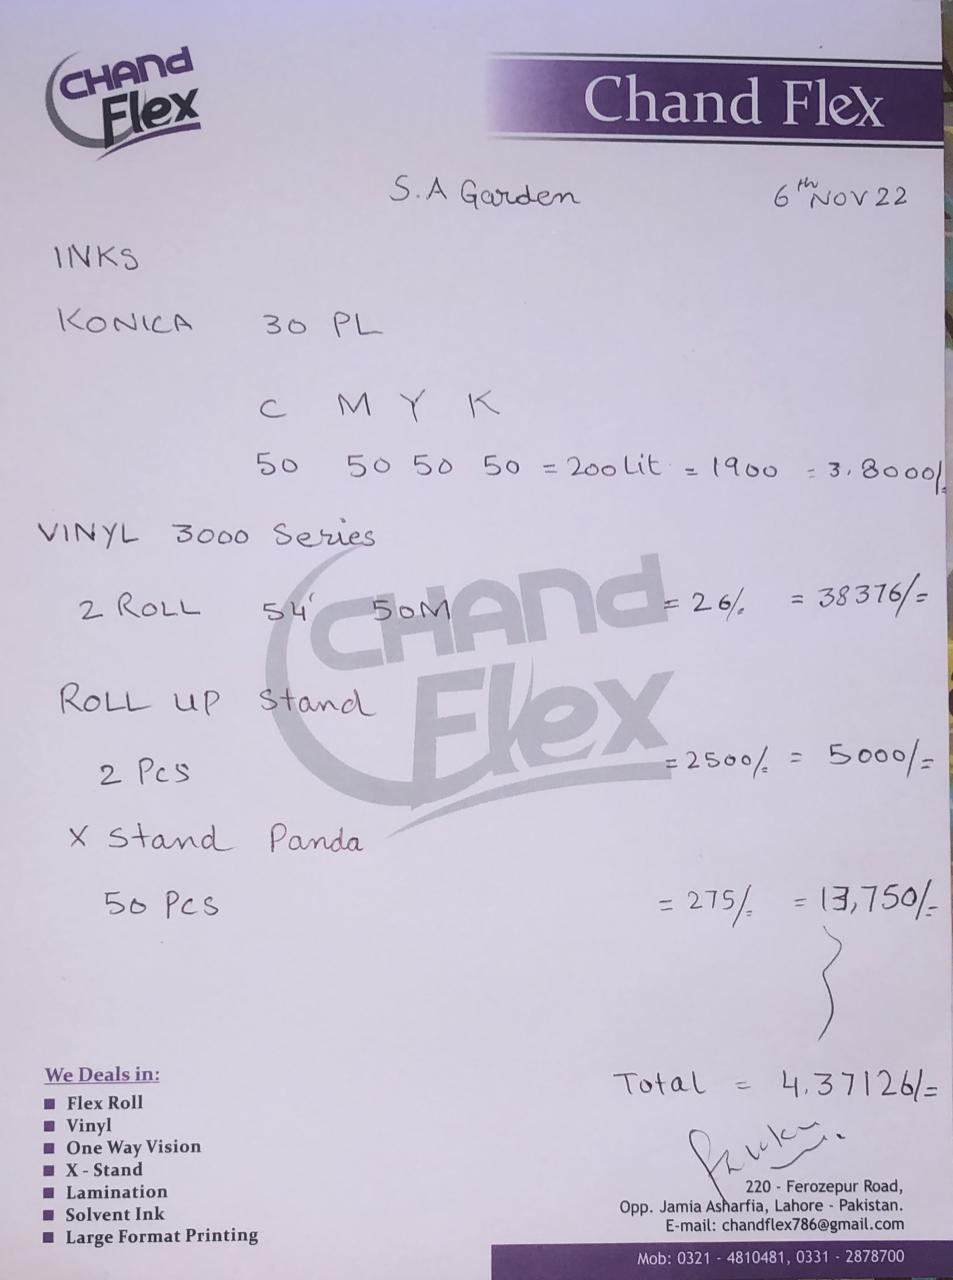 CHAND
Flex
Chand Flex
S.A Garden 6th NOV 22
INKS
KONICA 30 PL
C M Y K
50 50 50 50 = 200 Lit = 1900 = 3.8000/=
VINYL 3000 Series
2 ROLL 54' 50M = 26/= = 38376/=
CHAND
Flex
ROLL UP Stand
2 Pcs = 2500/= = 5000/=
X Stand Panda
50 Pcs = 275/= = 13,750/=
Total = 4.37126/=
We Deals in:
Flex Roll
Vinyl
One Way Vision
X - Stand
Lamination
Solvent Ink
Large Format Printing
220 - Ferozepur Road,
Opp. Jamia Asharfia, Lahore - Pakistan.
E-mail: chandflex786@gmail.com
Mob: 0321 - 4810481, 0331 - 2878700